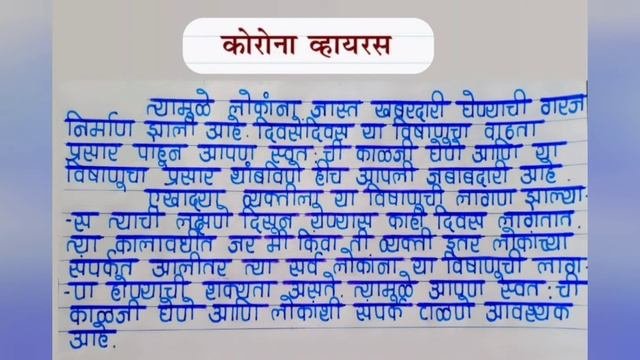 कोरोना व्हायरस
त्यामुळे लोकांना जास्त खबरदारी घेण्याची गरज
निर्माण झाली आहे. दिवसेंदिवस या विषाणूचा वाढता
प्रसार पाहून आपण स्वत:ची काळजी घेणे आणि या
विषाणूचा प्रसार थांबविणे हीच आपली जबाबदारी आहे.
एखादया व्यक्तीला या विषाणूची लागण झाल्या-
-स त्याची लक्षणे दिसून येण्यास काही दिवस लागतात.
त्या कालावधीत जर मी किंवा ती व्यक्ती इतर लोकांच्या
संपर्कात आलीतर त्या सर्व लोकांना या विषाणूची लाग-
-ण होण्याची शक्यता असते. त्यामूळे आपण स्वत:ची
काळजी घेणे आणि लोकांशी संपर्क टाळणे आवश्यक
आहे.